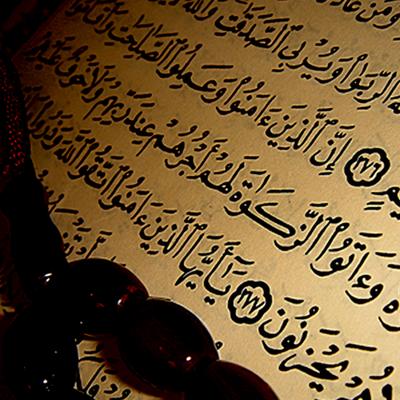 وَمَنْ عَادَ
ٱلرِّبَوٰا۟ وَيُرْبِى ٱلصَّدَقَـٰتِ وَٱللَّهُ
يمٍ ٢٧٦ إِنَّ ٱلَّذِينَ ءَامَنُوا۟ وَعَمِلُوا۟ ٱلصَّـٰلِحَـٰتِ وَأَقَامُوا۟
ةَ وَءَاتَوُا۟ ٱلزَّكَوٰةَ لَهُمْ أَجْرُهُمْ عِندَ رَبِّهِمْ وَلَا خَوْفٌ عَلَيْ
هُمْ يَحْزَنُونَ ٢٧٧ يَـٰٓأَيُّهَا ٱلَّذِينَ ءَامَنُوا۟ ٱتَّقُوا۟ ٱللَّهَ وَذَرُوا۟